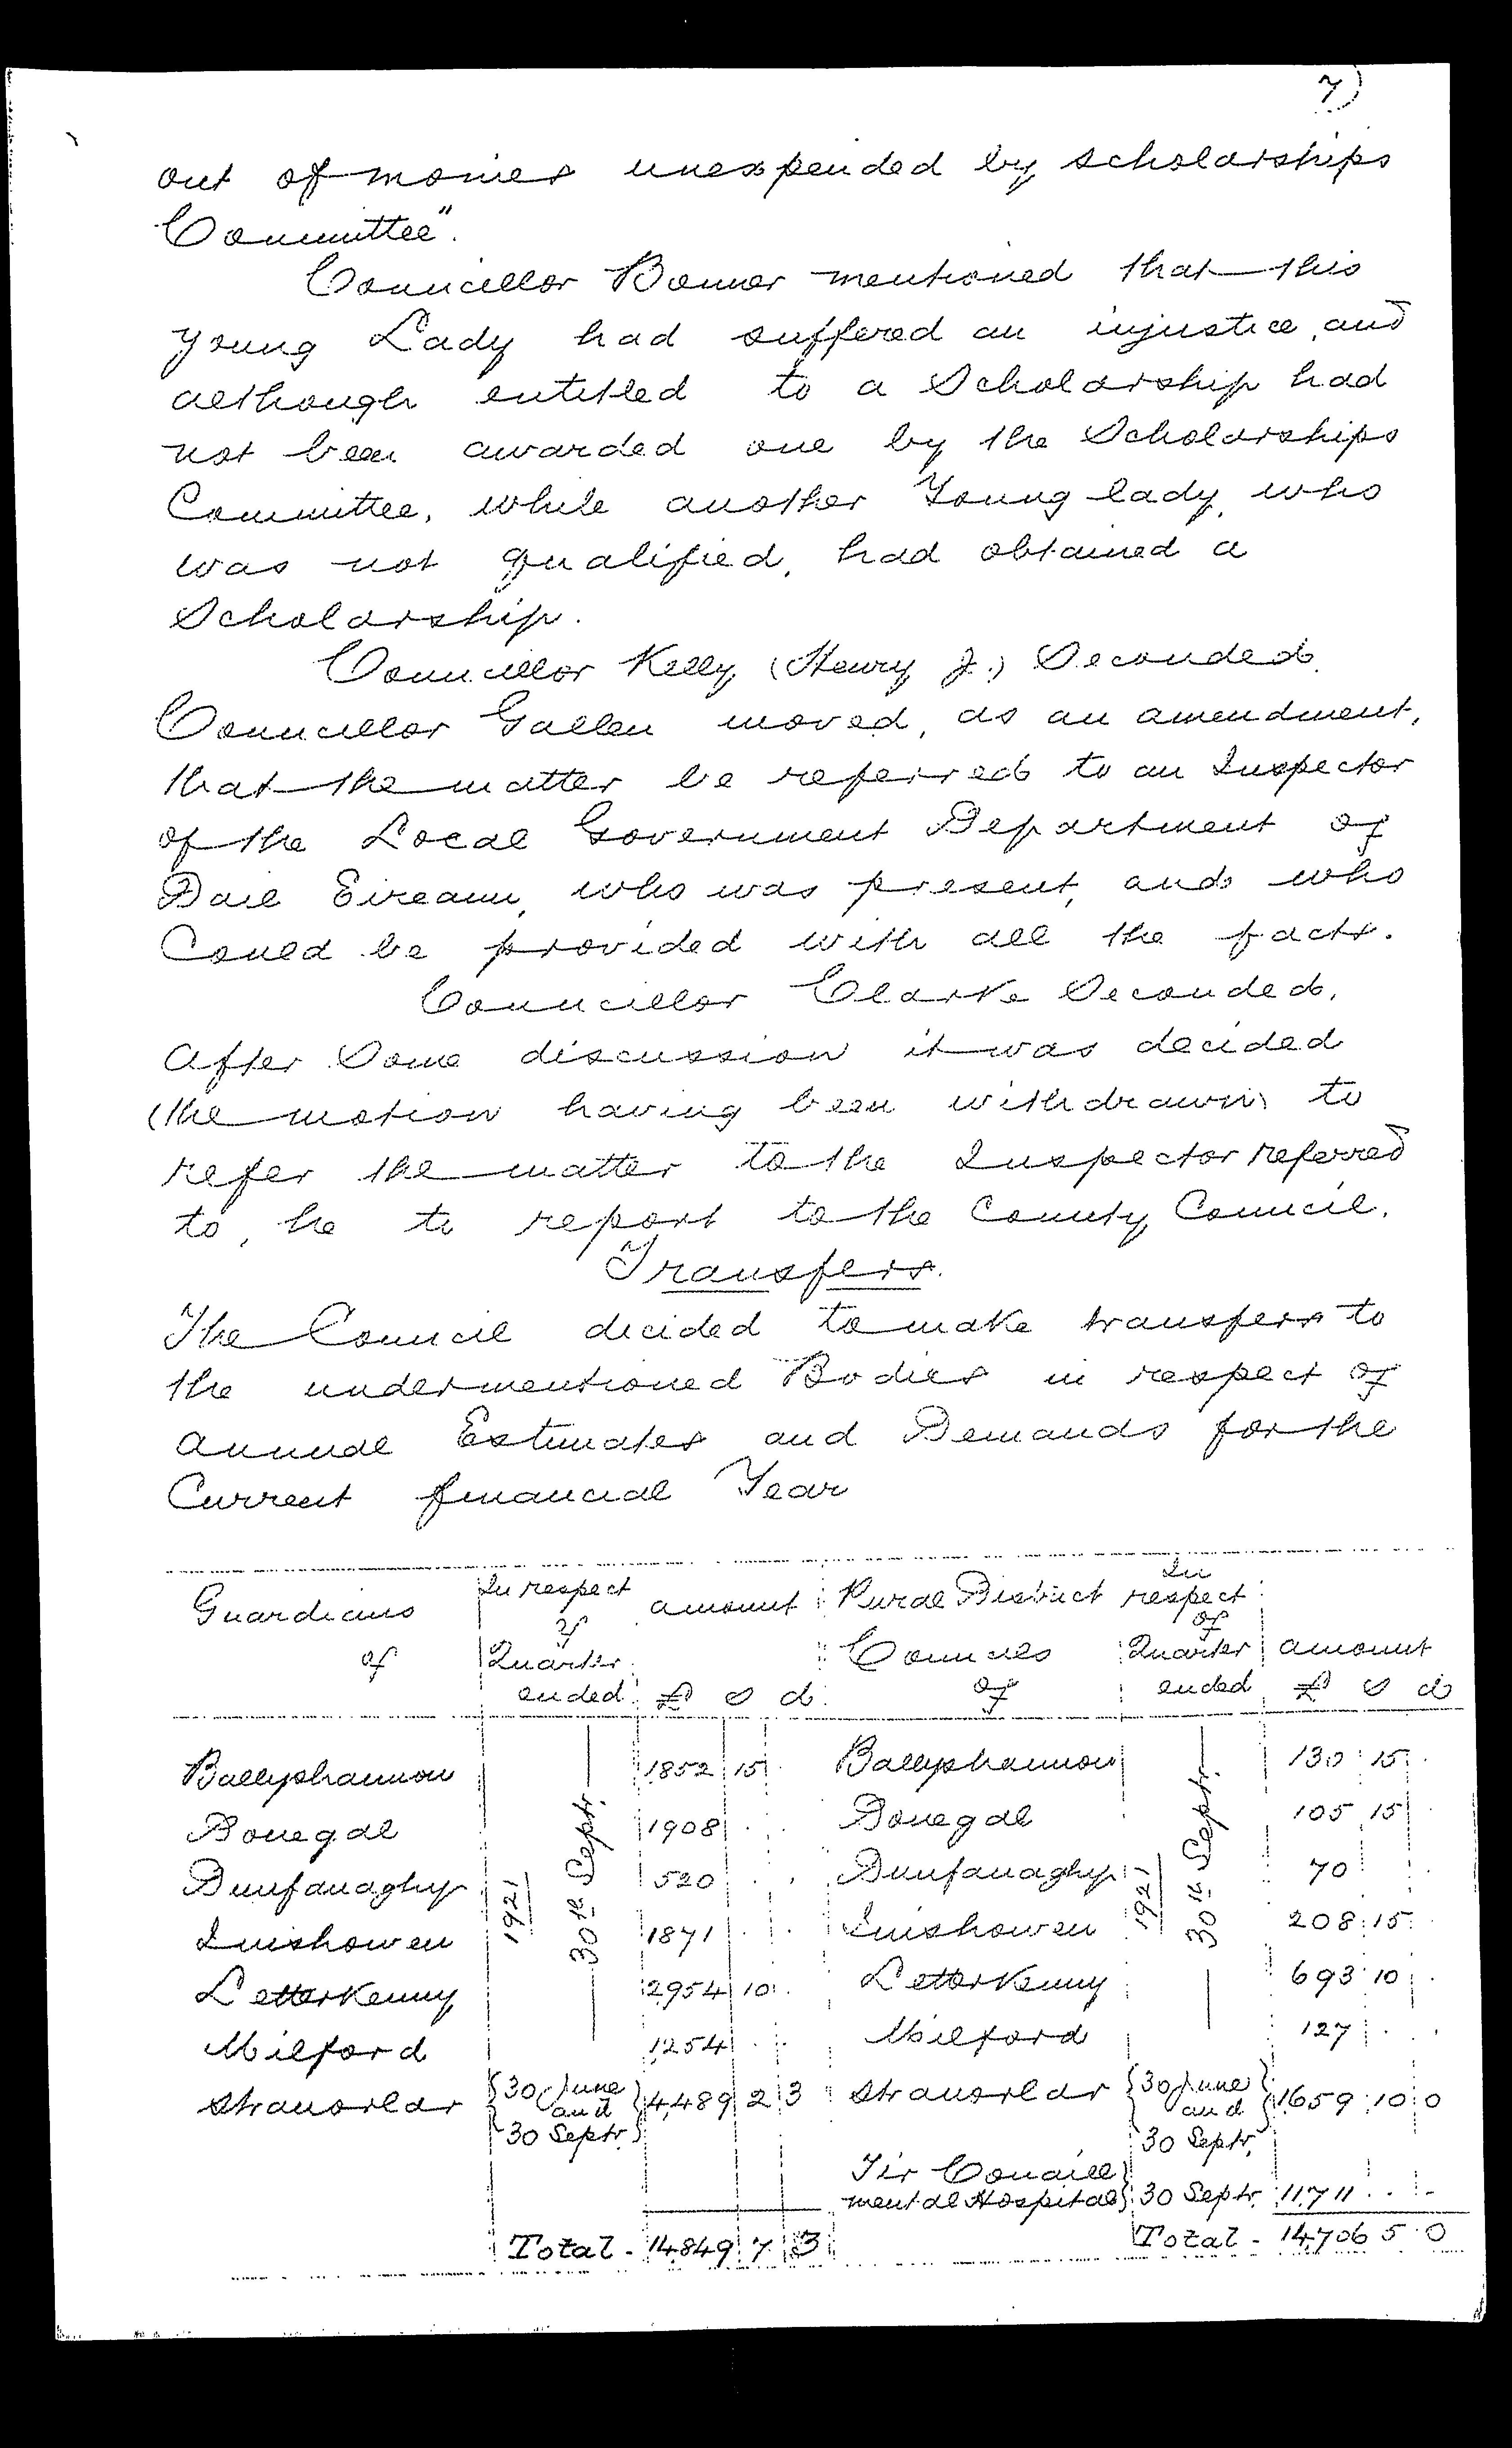 7)
out of monies unexpended by scholarships
Committee".
Councillor Bonner mentioned that this
young Lady had suffered an injustice, and
although entitled to a Scholarship had
not been awarded one by the Scholarships
Committee, while another Young lady, who
was not qualified, had obtained a
Scholarship.
Councillor Kelly (Henry J.) Seconded.
Councillor Gallen moved, as an amendment,
that the matter be referred to an Inspector
of the Local Government Department of
Dail Eireann, who was present, and who
Could be provided with all the facts.
Councillor Clarke Seconded.
After Some discussion it was decided
(the motion having been withdrawn) to
refer the matter to the Inspector referred
to, he to report to the County Council.
Transfers.
The Council decided to make transfers to
the undermentioned Bodies in respect of
annual Estimates and Demands for the
Current financial Year
Guardians of | In respect of Quarter ended | amount £ s d | Rural District Councils of | In respect of Quarter ended | amount £ s d
Ballyshannon | 1921 30th Septr. | 1852 15 . | Ballyshannon | 1921 30th Septr. | 130 15 .
Donegal 1908 . . Donegal 105 15 .
Dunfanaghy 520 . . Dunfanaghy 70 .
Inishowen 1871 . . Inishowen 208 15 .
Letterkenny 2954 10 . Letterkenny 693 10 .
Milford 1254 . . Milford 127 . .
Stranorlar {30 June and 30 Septr.} 4,489 2 3 Stranorlar {30 June and 30 Septr.} 1659 10 0
Tir Conaill mental Hospital} 30 Septr. 11,711 . . -
Total - 14,849 7 3 Total - 14,706 5 0